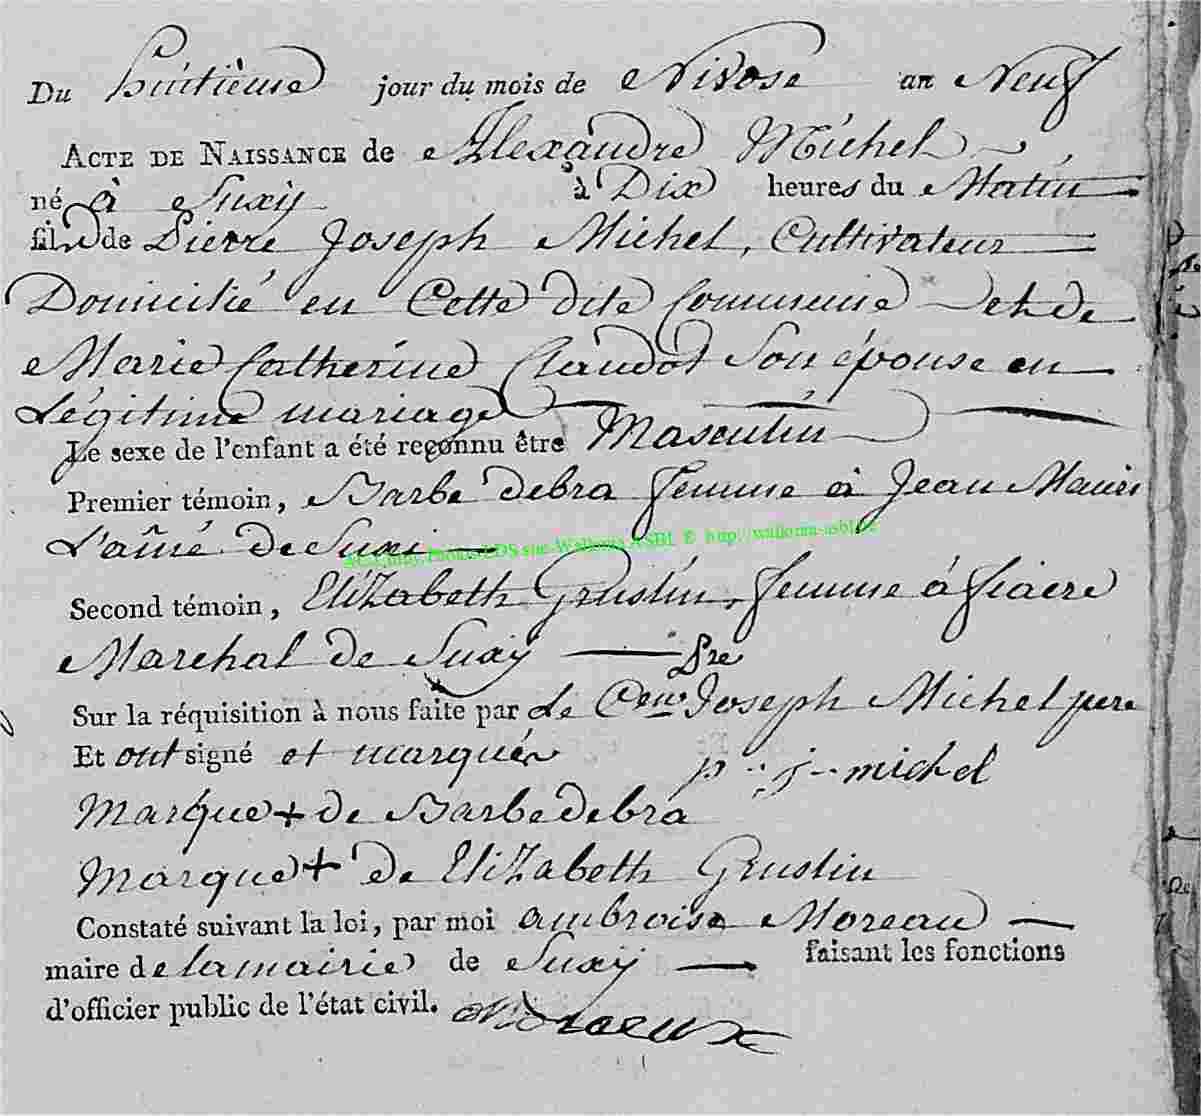 Du huitième jour du mois de Nivose an Neuf
ACTE DE NAISSANCE de Alexandre Michel
né à Suxÿ à Dix heures du Matin
fils de Pierre Joseph Michel, Cultivateur
Domicilié en Cette dite Commune et de
Marie Catherine Claudot Son épouse en
Légitime mariage
Le sexe de l'enfant a été reconnu être Masculin
Premier témoin, Barbe debra femme à Jean
L'aîné de Suxi
Second témoin, Elizabeth Grustin, femme à fiacre
Marchal de Suxÿ
pre
Sur la réquisition à nous faite par Le Cen Joseph Michel pere
Et ont signé et marqués p. j. michel
Marque + de Barbe debra
Marque + de Elizabeth Grustin
Constaté suivant la loi, par moi ambroise Moreau
maire de la mairie de Suxÿ faisant les fonctions
d'officier public de l'état civil. Moreaux